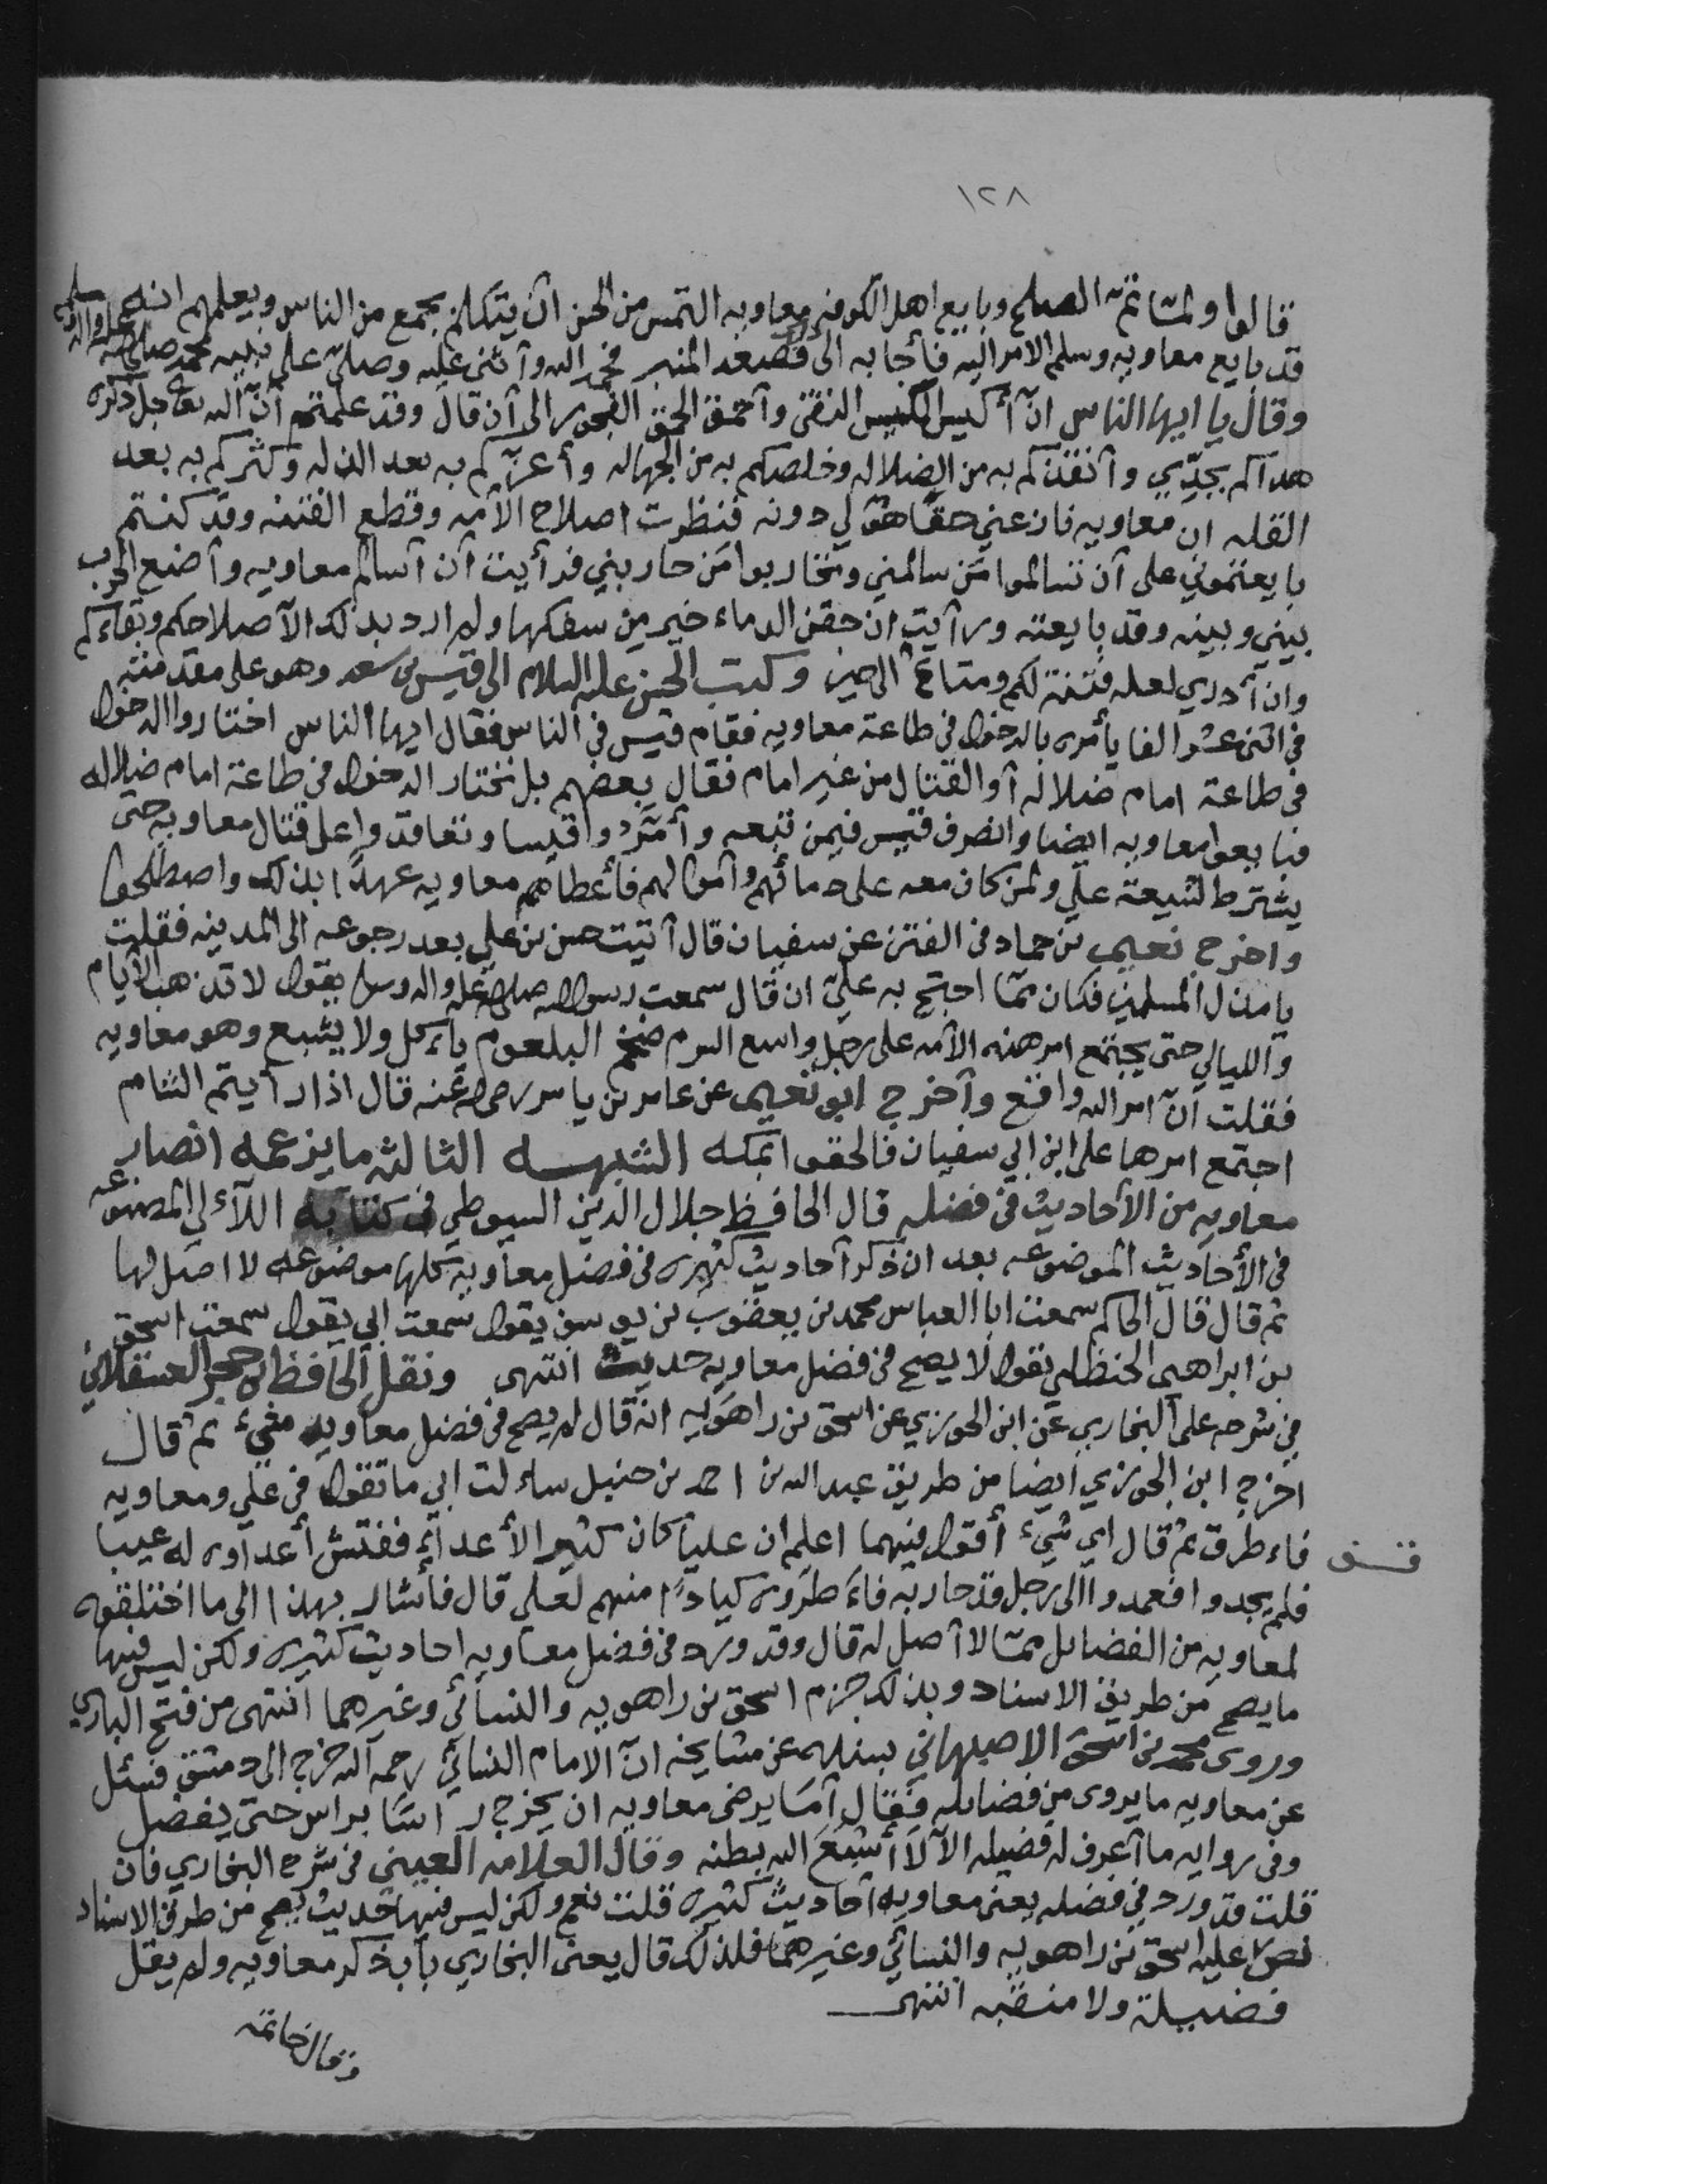 ١٢٨
قالوا ولمّا تمّ الصلح وبايع اهل الكوفه معاويه التمس من الحسن أن يتكلم بجمع من الناس ويعلمهم انه
قد بايع معاويه وسلم الامر اليه فأجابه الى ذلك فصعد المنبر فحمد الله وأثنى عليه وصلّى على نبيه محمد صلى الله عليه واله وسلم
وقال يا ايها الناس انّ أكيس الكيس التقى وأحمق الحمق الفجور الى أن قال وقد علمتم أنّ الله تعالى جل ذكره
هداكم بجدّي وأنقذكم به من الضلاله وخلصكم به من الجهاله وأعزّكم به بعد الذله وكثركم به بعد
القله ان معاويه نازعني حقّا هو لي دونه فنظرت اصلاح الأمه وقطع الفتنه وقد كنتم
بايعتموني على أن تسالموا مَن سالمني وتحاربوا مَن حاربني فرأيت أن أسالم معاويه وأضع الحرب
بيني وبينه وقد بايعته ورأيت ان حقن الدماء خير من سفكها ولم ارد بذلك الّا صلاحكم وبقاءكم
وان أدري لعله فتنة لكم ومتاعٌ الى حين وكتب الحسن عليه السلام الى قيس بن سعد وهو على مقدمته
في اثنى عشر الفا يأمره بالدخول في طاعة معاويه فقام قيس في الناس فقال ايها الناس اختاروا الدخول
في طاعة امام ضلاله أو القتال من غير امام فقال بعضهم بل نختار الدخول في طاعة امام ضلاله
فبايعوا معاويه ايضا وانصرف قيس فيمن تبعه وأمّروا قيسا وتعاقدوا على قتال معاويه حتى
يشترط لشيعة علي ولمن كان معه على دمائهم وأموالهم فأعطاهم معاويه عهدًا بذلك واصطلحوا
واخرج نعيم بن حماد في الفتن عن سفيان قال أتيت حسن بن علي بعد رجوعه الى المدينه فقلت
يا مذل المسلمين فكان ممّا احتج به عليّ ان قال سمعت رسول الله صلى الله عليه واله وسلم يقول لا تذهب الأيام
والليالي حتى يجتمع امر هذه الأمه على رجل واسع السرم ضخم البلعوم يأكل ولا يشبع وهو معاويه
فقلت أنّ امر الله واقع وأخرج ابو نعيم عن عامر بن ياسر رضى الله عنه قال اذا رأيتم الشام
اجتمع امرها على ابن ابي سفيان فالحقوا بمكه الشبهــه الثالثه ما يزعمه انصار
معاويه من الأحاديث في فضله قال الحافظ جلال الدين السيوطي في كتابه اللآءلي المصنوعه
في الأحاديث الموضوعه بعد ان ذكر أحاديث كثيره في فضل معاويه كلها موضوعه لا اصل لها
ثم قال قال الحاكم سمعت ابا العباس محمد بن يعقوب بن يوسف يقول سمعت ابي يقول سمعت اسحق
بن ابراهيم الحنظلي يقول لا يصح في فضل معاويه حديث انتهى ونقل الحافظ ابن حجر العسقلاني
في شرحه على البخاري عن ابن الجوزي عن اسحق بن راهويه انه قال لم يصح في فضل معاويه شيء ثم قال
اخرج ابن الجوزي ايضا من طريق عبد الله بن احمد بن حنبل ساءلت ابي ما تقول في علي ومعاويه
فاءطرق ثم قال اي شيء أقول فيهما اعلم ان عليا كان كثير الأعداء ففتش أعداؤه له عيبا
فلم يجدوا فعمدوا الى رجل قد حاربه فاءطروه كيادًا منهم لعلي قال فأشار بهذا الى ما اختلقوه
لمعاويه من الفضائل ممّا لا أصل له قال وقد ورد في فضل معاويه احاديث كثيره ولكن ليس فيها
ما يصح من طريق الاسناد وبذلك جزم اسحق بن راهويه والنسائي وغيرهما انتهى من فتح الباري
وروى محمد بن اسحق الاصبهاني بسنده عن مشايخه انّ الامام النسائي رحمه الله خرج الى دمشق فسئل
عن معاويه ما يروى من فضائله فقال أمَا يرضى معاويه ان يخرج رأسًا براس حتى يفضل
وفي روايه ما أعرف له فضيله الّا لا أشبع الله بطنه وقال العلامه العيني في شرح البخاري فان
قلت قد ورد في فضله يعنى معاويه أحاديث كثيره قلت نعم ولكن ليس فيها حديث يصح من طريق الاسناد
نصّ عليه اسحق بن راهويه والنسائي وغيرهما فلذلك قال يعنى البخاري باب ذكر معاويه ولم يقل
فضيلة ولا منقبه انتهى